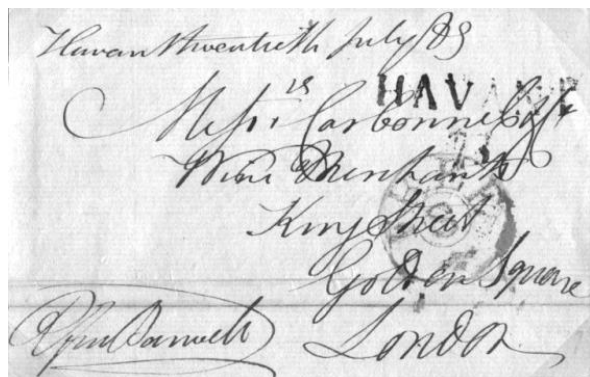 Havant twentieth July 89
HAVANT
Messrs Carbonnell &
Wine Merchants
King Street
Golden Square
London